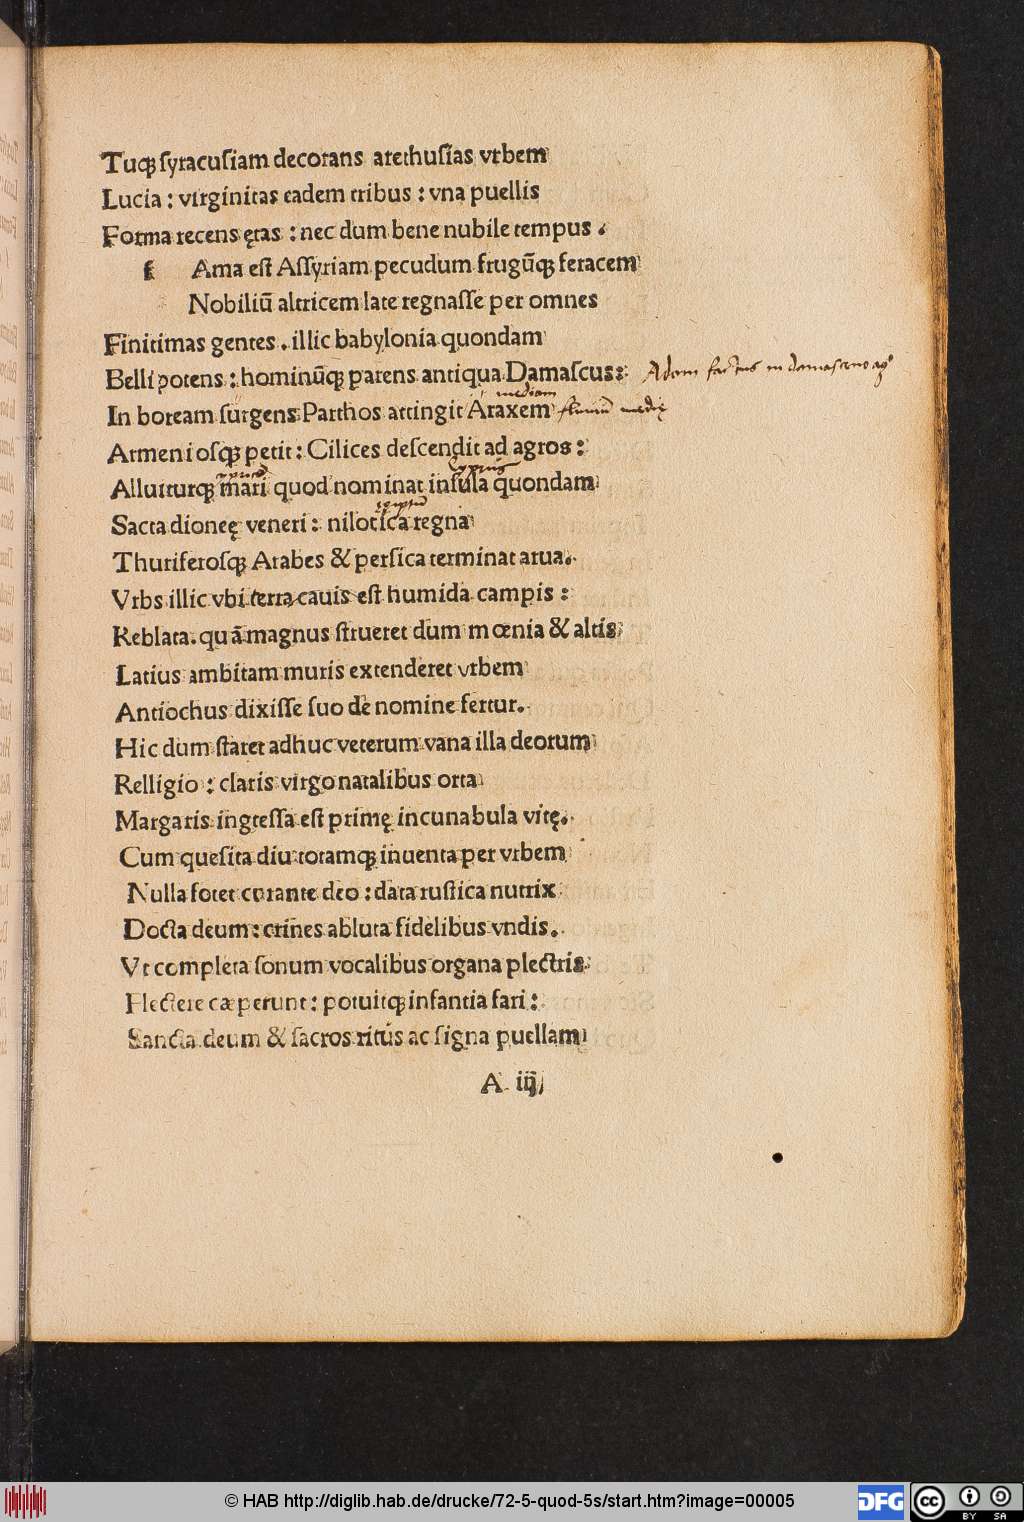 Tuqꝫ ſyracuſiam decorans arethuſias vrbem
Lucia : virginitas eadem tribus : vna puellis
Forma recens ętas : nec dum bene nubile tempus .
f Ama eſt Aſſyriam pecudum frugūqꝫ feracem
Nobiliū altricem late regnaſſe per omnes
Finitimas gentes . illic babylonia quondam
Belli potens : hominūqꝫ parens antiqua Damaſcus : Adam factus in damasceno ag
mediam
In boream ſurgens Parthos attingit Araxem fluuiū medię
Armenioſqꝫ petit : Cilices deſcendit ad agros :
cyprus
Alluiturqꝫ mari quod nominat inſula quondam
Sacra dioneę veneri : nilotica regna
Thuriferoſqꝫ Arabes & perſica terminat arua.
Vrbs illic vbi terra cauis eſt humida campis :
Reblata. quā magnus ſtrueret dum mœnia & altis
Latius ambitam muris extenderet vrbem
Antiochus dixiſſe ſuo de nomine fertur.
Hic dum ſtaret adhuc veterum vana illa deorum
Relligio : claris virgo natalibus orta
Margaris ingreſſa eſt primę incunabula vitę.
Cum queſita diu totamqꝫ inuenta per vrbem
Nulla foret curante deo : data ruſtica nutrix
Docta deum : crines abluta fidelibus vndis.
Vt completa ſonum vocalibus organa plectris
Flectere cæperunt : potuitqꝫ infantia fari :
Sancta deum & ſacros ritus ac ſigna puellam
A iij
© HAB http://diglib.hab.de/drucke/72-5-quod-5s/start.htm?image=00005
DFG
cc BY SA